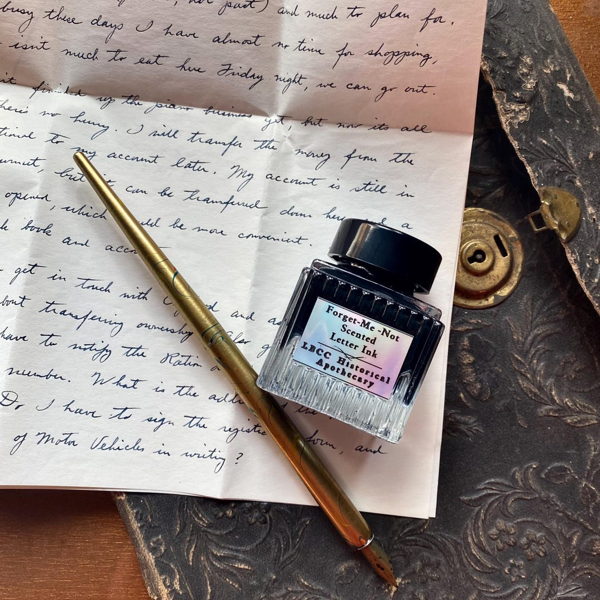 busy these days I have almost no time for shopping,
isn't much to eat here Friday night, we can go out.
up the piano business yet, but now its all
there's no hurry. I will transfer the money from the
to my account later. My account is still in
but it can be transferred down here
opened, which be more convenient.
book and
get in touch with and
about transfering ownership
have to notify the Ration
number. What is the
Do I have to sign the form, and
of Motor Vehicles in writing?
Forget-Me-Not
Scented
Letter Ink
LBCC Historical
Apothecary